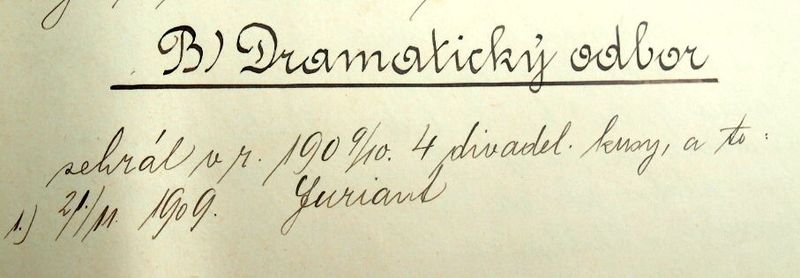 B) Dramatický odbor
sehrál v r. 1909/10. 4 divadel. kusy, a to:
1.) 21./11. 1909. Furiant